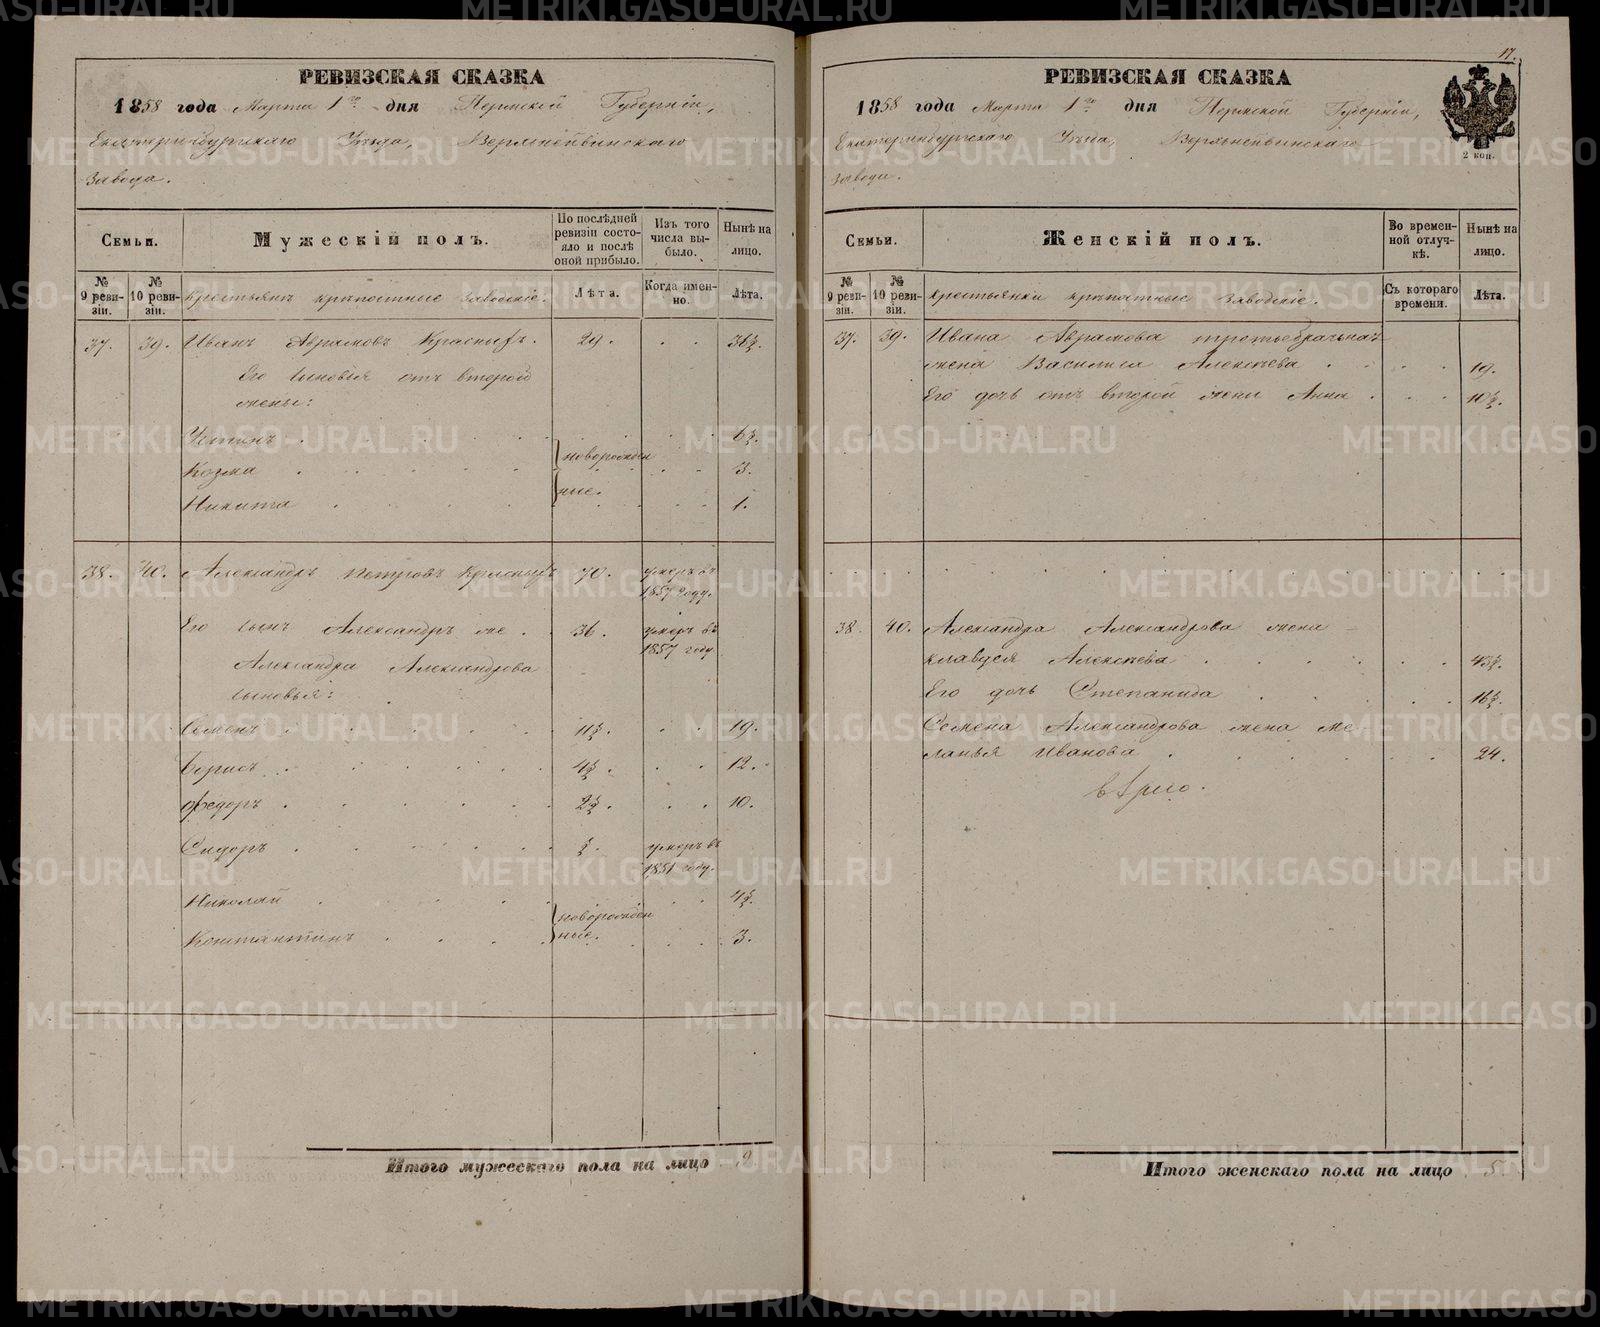 РЕВИЗСКАЯ СКАЗКА
1858 года Марта 1го дня Пермской Губернiи,
Екатеринбургскаго Уѣзда, Верхнейвинскаго
Завода.
Семьи.
Мужескiй полъ.
По послѣдней ревизiи состояло и послѣ оной прибыло.
Изъ того числа выбыло.
Нынѣ на лицо.
№ 9 ревизiи.
№ 10 ревизiи.
Крестьянъ крѣпостные заводскiе.
Лѣта.
Когда именно.
Лѣта.
37. 39. Иванъ Аврамовъ Красныхъ. 29. 38½.
Его сыновья отъ второй
жены:
Устинъ 6½.
Козма новорожден 3.
ные.
Никита 1.
38. 40. Александръ Петровъ Красныхъ 70. умеръ въ
1857 году.
Его сынъ Александръ же 36. умеръ въ
1857 году
Александра Александрова
сыновья:
Семенъ 11½. 19.
Борисъ 4½. 12.
Федоръ 2½. 10.
Сидоръ ½. умеръ въ
1851 году.
Николай 4½.
новорожден
Константинъ ные. 3.
Итого мужескаго пола на лицо 9
17.
РЕВИЗСКАЯ СКАЗКА
1858 года Марта 1го дня Пермской Губернiи,
Екатеринбургскаго Уѣзда, Верхнейвинскаго
завода.
2 коп.
Семьи.
Женскiй полъ.
Во временной отлучкѣ.
Нынѣ на лицо.
№ 9 ревизiи.
№ 10 ревизiи.
Крестьянки крѣпостные заводскiе.
Съ котораго времени.
Лѣта.
37. 39. Ивана Аврамова третьебрачная
жена Василиса Алексѣева 19.
Его дочь отъ второй жены Анна 10½.
38. 40. Александра Александрова жена
Клавдея Алексѣева 43½.
Его дочь Степанида 16½.
Семена Александрова жена Ме
ланья Иванова 24.
Итого женскаго пола на лицо 5.
METRIKI.GASO-URAL.RU